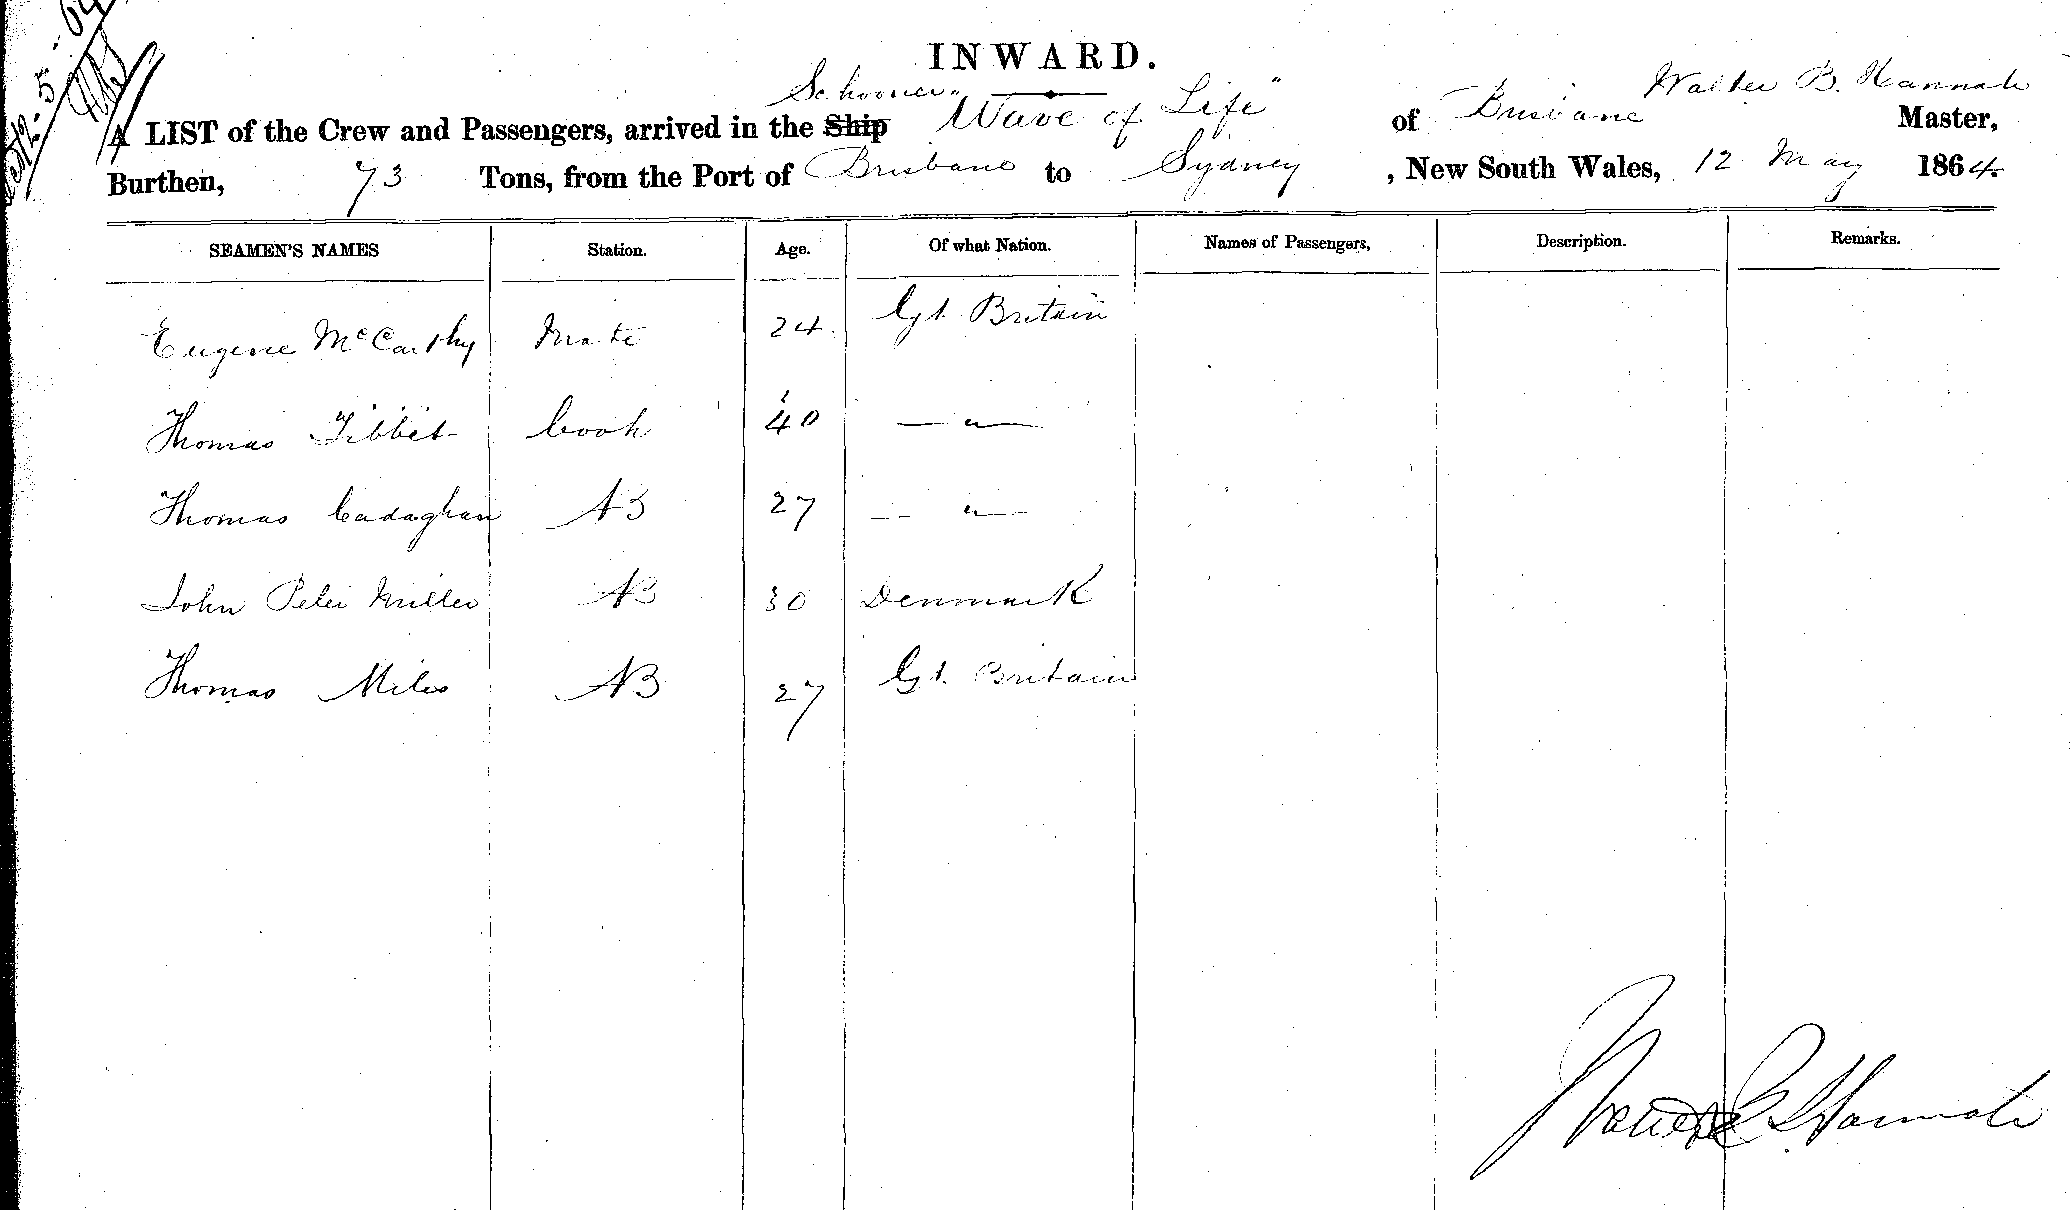 INWARD.
Schooner Walter B. Hannah
A LIST of the Crew and Passengers, arrived in the Ship "Wave of Life" of Brisbane Master,
Burthen, 73 Tons, from the Port of Brisbane to Sydney, New South Wales, 12 May 1864.
SEAMEN'S NAMES Station. Age. Of what Nation. Names of Passengers, Description. Remarks.
Eugene McCarthy Mate 24 Gt. Britain
Thomas Tibbet Cook 40 — " —
Thomas Cadaghan AB 27 — " —
John Peter Miller AB 30 Denmark
Thomas Miles AB 27 Gt. Britain
Hannah